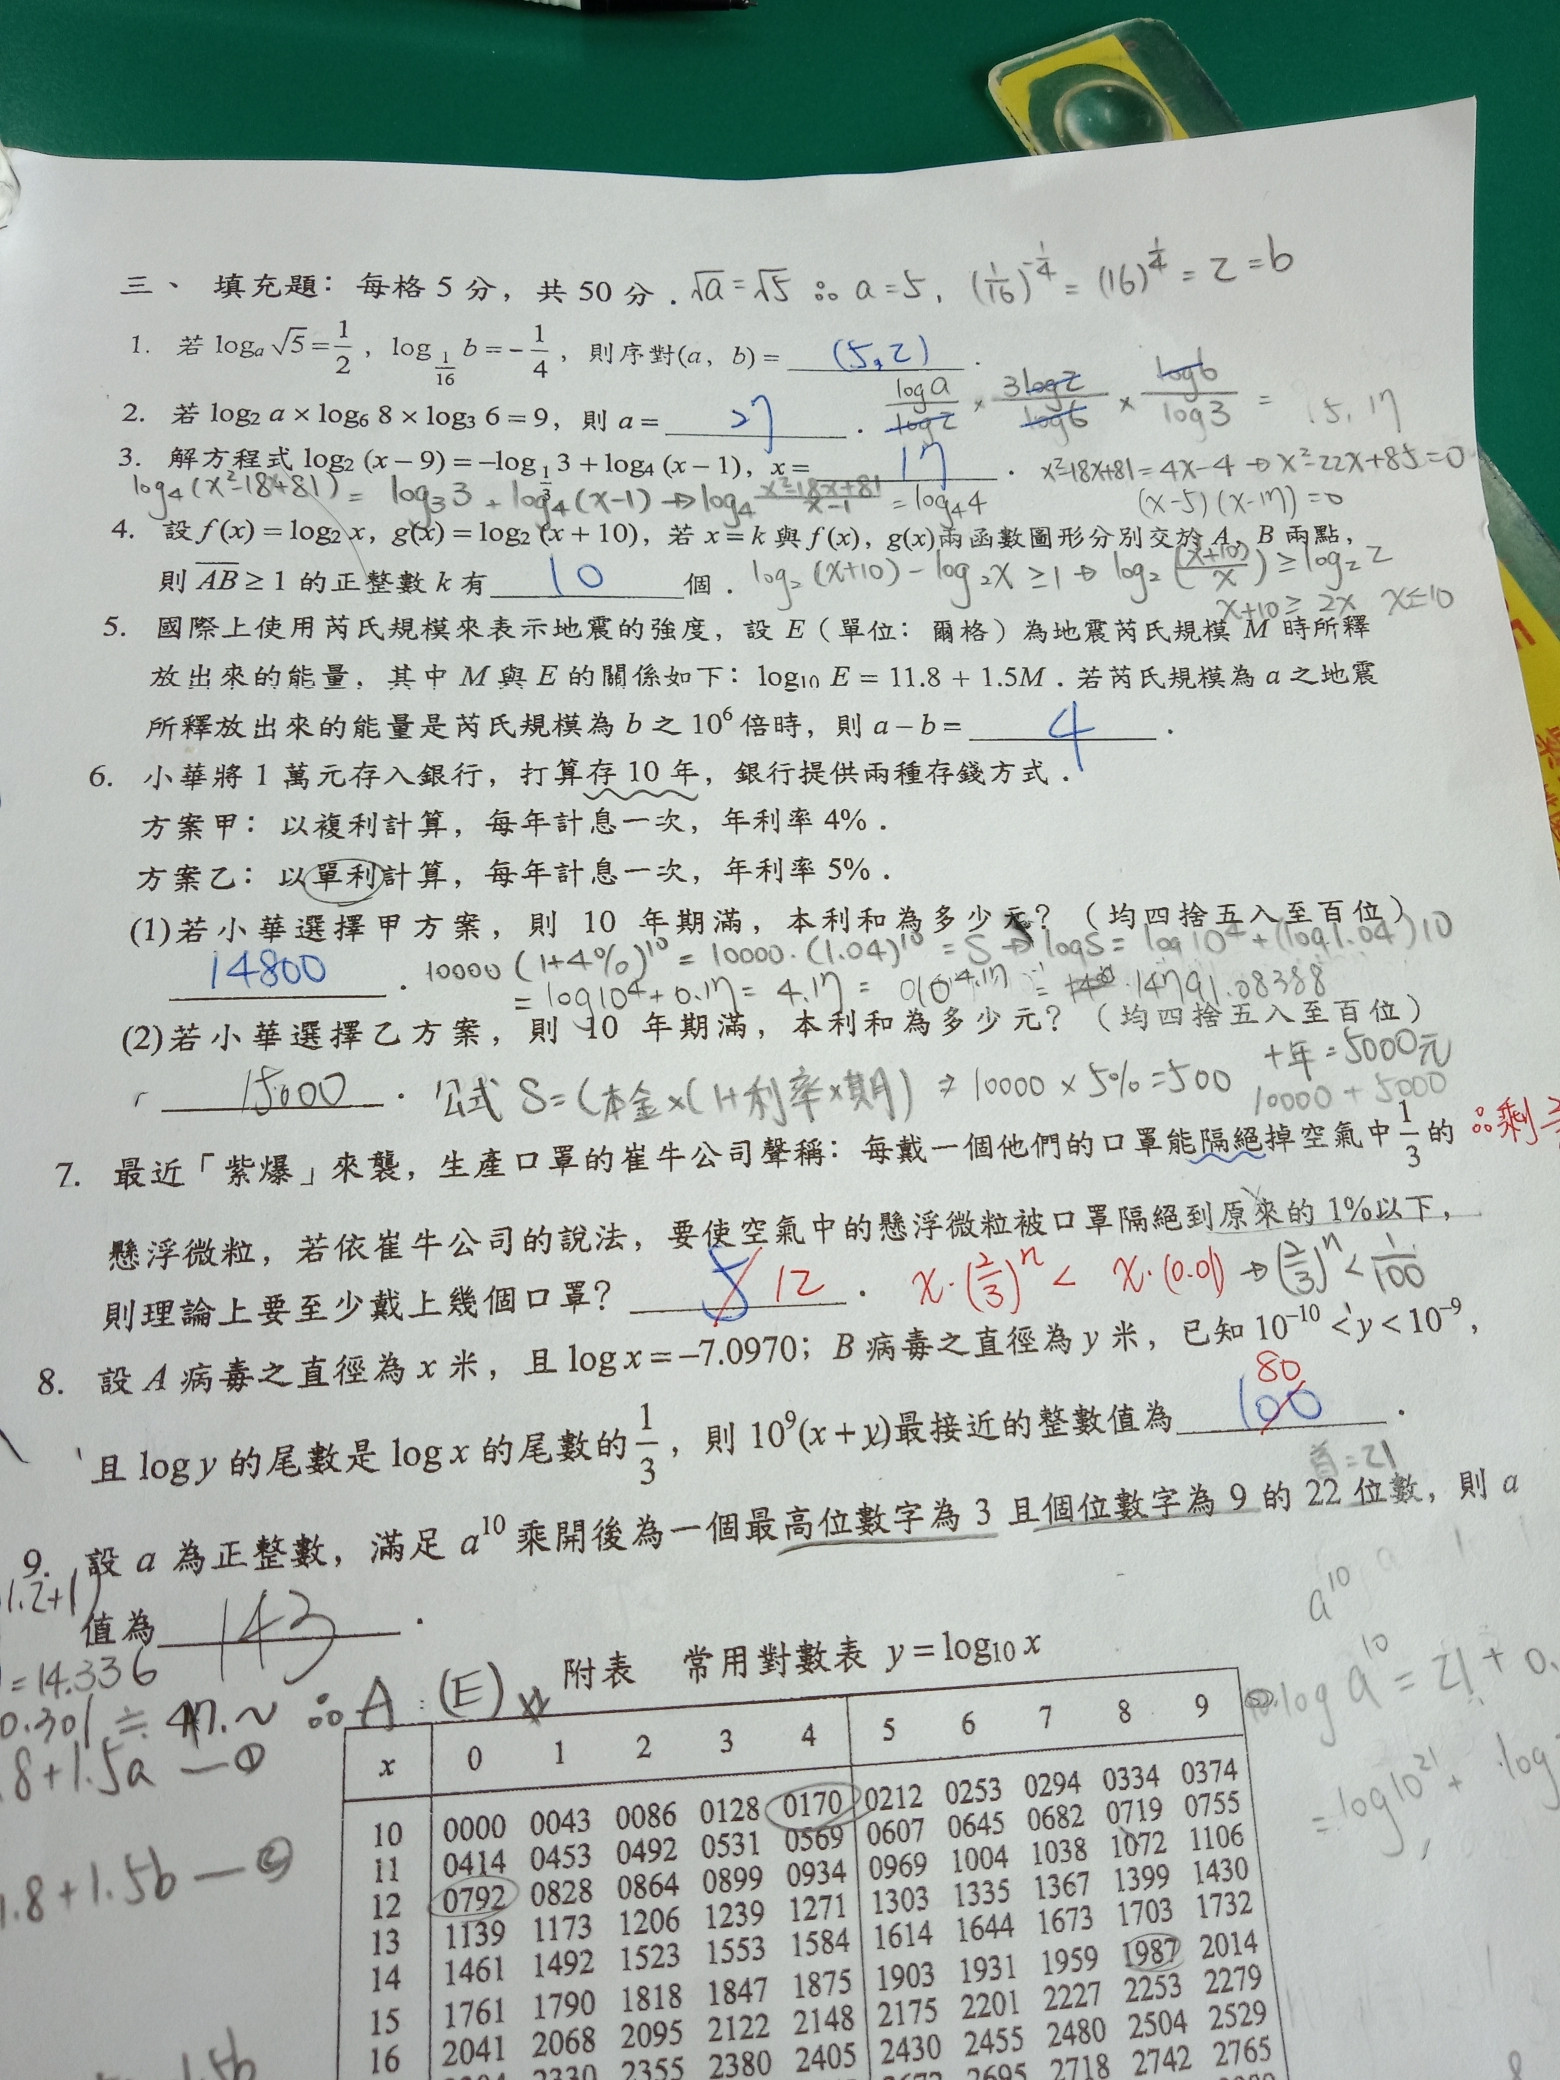 三、 填充題：每格 5 分，共 50 分．√a = √5 ∴ a = 5, (1/16)^(-1/4) = (16)^(1/4) = 2 = b
1. 若 logₐ √5 = 1/2，log_(1/16) b = -1/4，則序對(a，b) = (5,2)．
2. 若 log₂ a × log₆ 8 × log₃ 6 = 9，則 a = 27． log a/log 2 × 3log2/log6 × log6/log3 =
5, 17
3. 解方程式 log₂ (x－9) = －log_(1/3) 3 + log₄ (x－1)，x = 17． x²-18x+81 = 4x-4 → x²-22x+85=0
log₄(x²-18x+81) = log₃3 + log₄(x-1) → log₄ (x²-18x+81)/(x-1) = log₄4 (x-5)(x-17)=0
4. 設 f(x) = log₂ x，g(x) = log₂ (x + 10)，若 x = k 與 f(x)，g(x)兩函數圖形分別交於 A，B 兩點，
則 AB ≥ 1 的正整數 k 有 10 個． log₂(x+10) - log₂x ≥ 1 → log₂((x+10)/x) ≥ log₂2
x+10 ≥ 2x x≤10
5. 國際上使用芮氏規模來表示地震的強度，設 E（單位：爾格）為地震芮氏規模 M 時所釋
放出來的能量，其中 M 與 E 的關係如下：log₁₀ E = 11.8 + 1.5M．若芮氏規模為 a 之地震
所釋放出來的能量是芮氏規模為 b 之 10⁶ 倍時，則 a－b = 4．
6. 小華將 1 萬元存入銀行，打算存 10 年，銀行提供兩種存錢方式．
方案甲：以複利計算，每年計息一次，年利率 4%．
方案乙：以單利計算，每年計息一次，年利率 5%．
(1)若小華選擇甲方案，則 10 年期滿，本利和為多少元？（均四捨五入至百位）
14800． 10000(1+4%)¹⁰ = 10000·(1.04)¹⁰ = S → logS = log10⁴+(log1.04)10
= log10⁴ + 0.17 = 4.17 = 10^4.17 = 14791.08388
(2)若小華選擇乙方案，則 10 年期滿，本利和為多少元？（均四捨五入至百位）
15000． 公式 S=(本金×(1+利率×期) ⇒ 10000 × 5% = 500 十年=5000元
10000 + 5000
7. 最近「紫爆」來襲，生產口罩的崔牛公司聲稱：每戴一個他們的口罩能隔絕掉空氣中 1/3 的 ∴剩
懸浮微粒，若依崔牛公司的說法，要使空氣中的懸浮微粒被口罩隔絕到原來的 1%以下，
則理論上要至少戴上幾個口罩？ 5 12． x·(2/3)ⁿ < x·(0.01) → (2/3)ⁿ < 1/100
8. 設 A 病毒之直徑為 x 米，且 log x = －7.0970；B 病毒之直徑為 y 米，已知 10⁻¹⁰ < y < 10⁻⁹，
80
且 log y 的尾數是 log x 的尾數的 1/3，則 10⁹(x + y)最接近的整數值為 100．
首=21
9. 設 a 為正整數，滿足 a¹⁰ 乘開後為一個最高位數字為 3 且個位數字為 9 的 22 位數，則 a
1.2+1)
值為 143．
a¹⁰
=14.336
log a¹⁰ = 21 + 0.
0.301 ≒ 47.~ ∴ A : (E)
8+1.5a —①
= log10²¹ + log
1.8+1.5b —②
1.5b
附表 常用對數表 y = log₁₀ x
x 0 1 2 3 4 5 6 7 8 9
10 0000 0043 0086 0128 0170 0212 0253 0294 0334 0374
11 0414 0453 0492 0531 0569 0607 0645 0682 0719 0755
12 0792 0828 0864 0899 0934 0969 1004 1038 1072 1106
13 1139 1173 1206 1239 1271 1303 1335 1367 1399 1430
14 1461 1492 1523 1553 1584 1614 1644 1673 1703 1732
15 1761 1790 1818 1847 1875 1903 1931 1959 1987 2014
16 2041 2068 2095 2122 2148 2175 2201 2227 2253 2279
2330 2355 2380 2405 2430 2455 2480 2504 2529
2695 2718 2742 2765